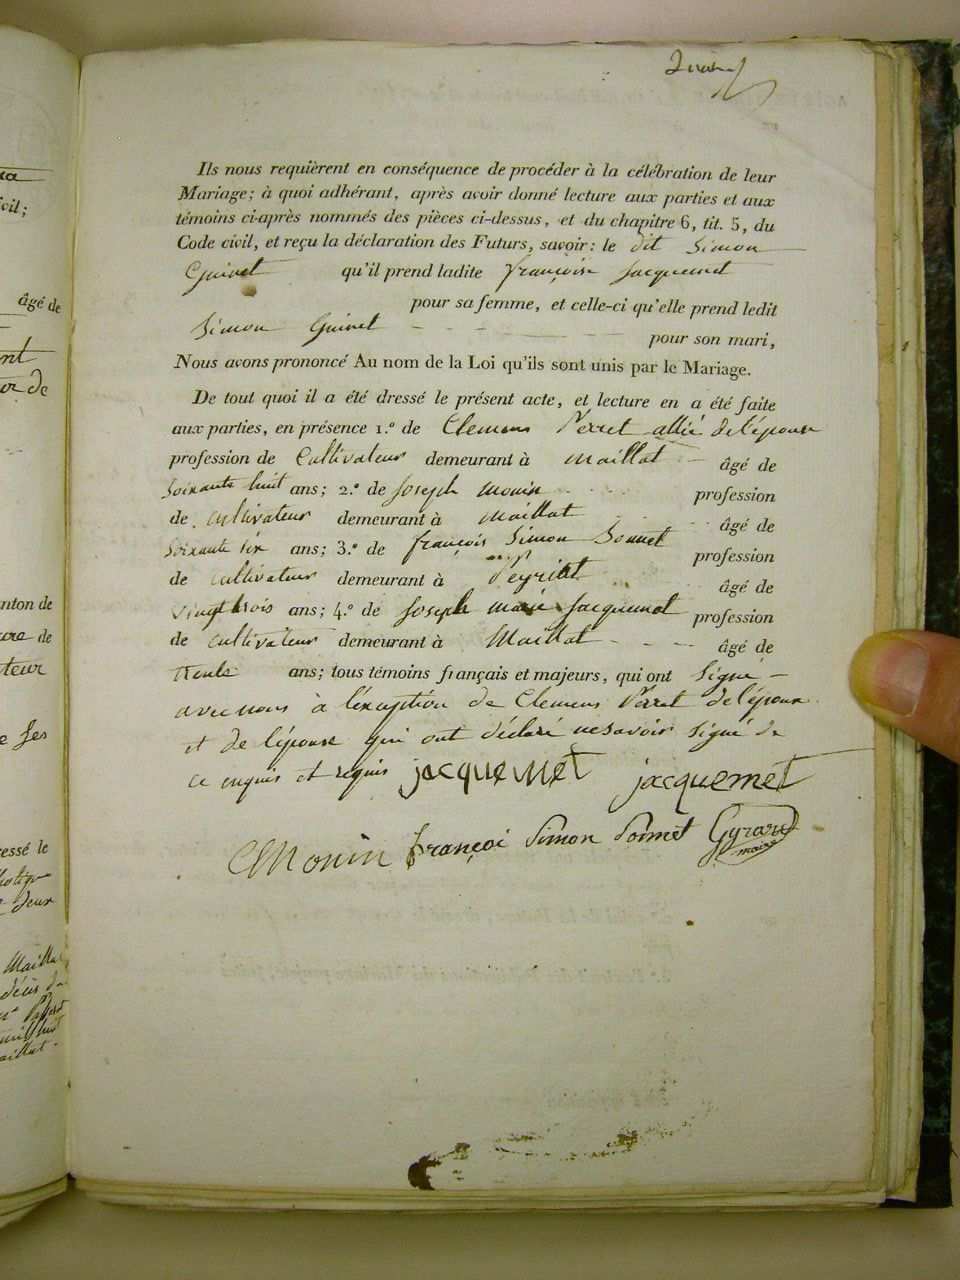 Ils nous requièrent en conséquence de procéder à la célébration de leur
Mariage; à quoi adhérant, après avoir donné lecture aux parties et aux
témoins ci-après nommés des pièces ci-dessus, et du chapitre 6, tit. 5, du
Code civil, et reçu la déclaration des Futurs, savoir: le dit Simon
Guinet qu'il prend ladite françoise Jacquemet
pour sa femme, et celle-ci qu'elle prend ledit
Simon Guinet pour son mari,
Nous avons prononcé Au nom de la Loi qu'ils sont unis par le Mariage.
De tout quoi il a été dressé le présent acte, et lecture en a été faite
aux parties, en présence 1.º de Clemens Perret allié de l'épouse
profession de Cultivateur demeurant à Maillat âgé de
soixante huit ans; 2.º de Joseph Monin profession
de cultivateur demeurant à Maillat âgé de
soixante six ans; 3.º de françois Simon Sonnet profession
de cultivateur demeurant à Peyriat âgé de
vingt trois ans; 4.º de Joseph marie Jacquemet profession
de cultivateur demeurant à Maillat âgé de
trente ans; tous témoins français et majeurs, qui ont signé
avec nous à l'exception de Clemens Perret de l'époux
et de l'épouse qui ont déclaré ne savoir signé de
ce enquis et requis jacquemet jacquemet
Monin françoi Simon Sonnet Gyrard
maire
âgé de
anton de
essé le
deux